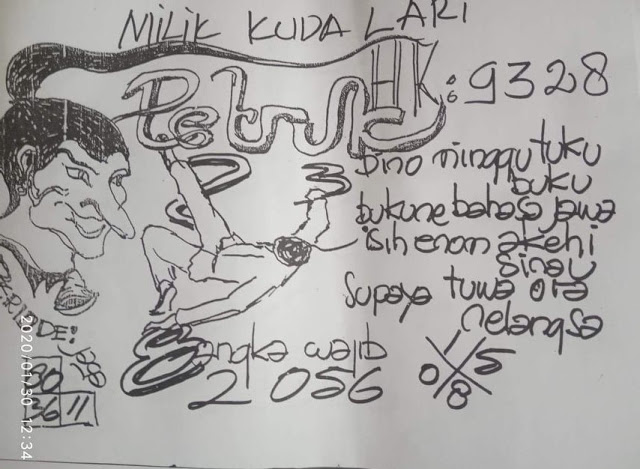 MILIK KUDA LARI
Petruk HK: 9328
Dino minggu tuku
buku
bukune bahasa jawa
isih enom akehi
sinau
Supaya tuwa ora
nelangsa
3
8
angka wajib
2056
1 5
0 8
DE!
36 11
2020/01/30 12:34